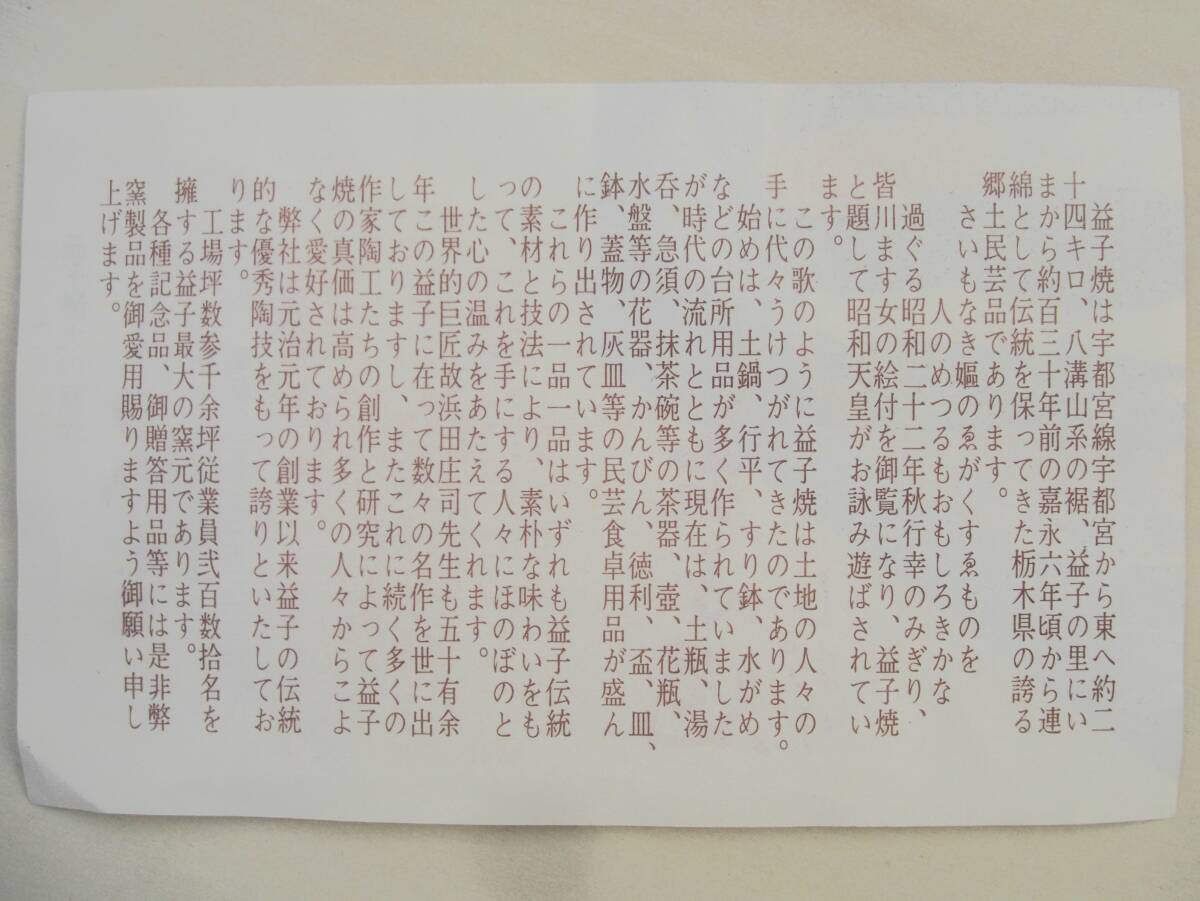 益子焼は宇都宮線宇都宮から東へ約二
十四キロ、八溝山系の裾、益子の里にい
まから約百三十年前の嘉永六年頃から連
綿として伝統を保ってきた栃木県の誇る
郷土民芸品であります。
さいもなき嫗のゑがくすゑものを
人のめつるもおもしろきかな
過ぐる昭和二十二年秋行幸のみぎり、
皆川ます女の絵付を御覧になり、益子焼
と題して昭和天皇がお詠み遊ばされてい
ます。
この歌のように益子焼は土地の人々の
手に代々うけつがれてきたのであります。
始めは、土鍋、行平、すり鉢、水がめ
などの台所用品が多く作られていました
が時代の流れとともに現在は、土瓶、湯
呑、急須、抹茶碗等の茶器、壺、花瓶、
水盤等の花器、かんびん、徳利、盃、皿、
鉢、蓋物、灰皿等の民芸食卓用品が盛ん
に作り出されています。
これらの一品一品はいずれも益子伝統
の素材と技法により、素朴な味わいをも
って、これを手にする人々にほのぼのと
した心の温みをあたえてくれます。
世界的巨匠故浜田庄司先生も五十有余
年この益子に在って数々の名作を世に出
しておりますし、またこれに続く多くの
作家陶工たちの創作と研究によって益子
焼の真価は高められ多くの人々からこよ
なく愛好されております。
弊社は元治元年の創業以来益子の伝統
的な優秀陶技をもって誇りといたしてお
ります。
工場坪数参千余坪従業員弐百数拾名を
擁する益子最大の窯元であります。
各種記念品、御贈答用品等には是非弊
窯製品を御愛用賜りますよう御願い申し
上げます。